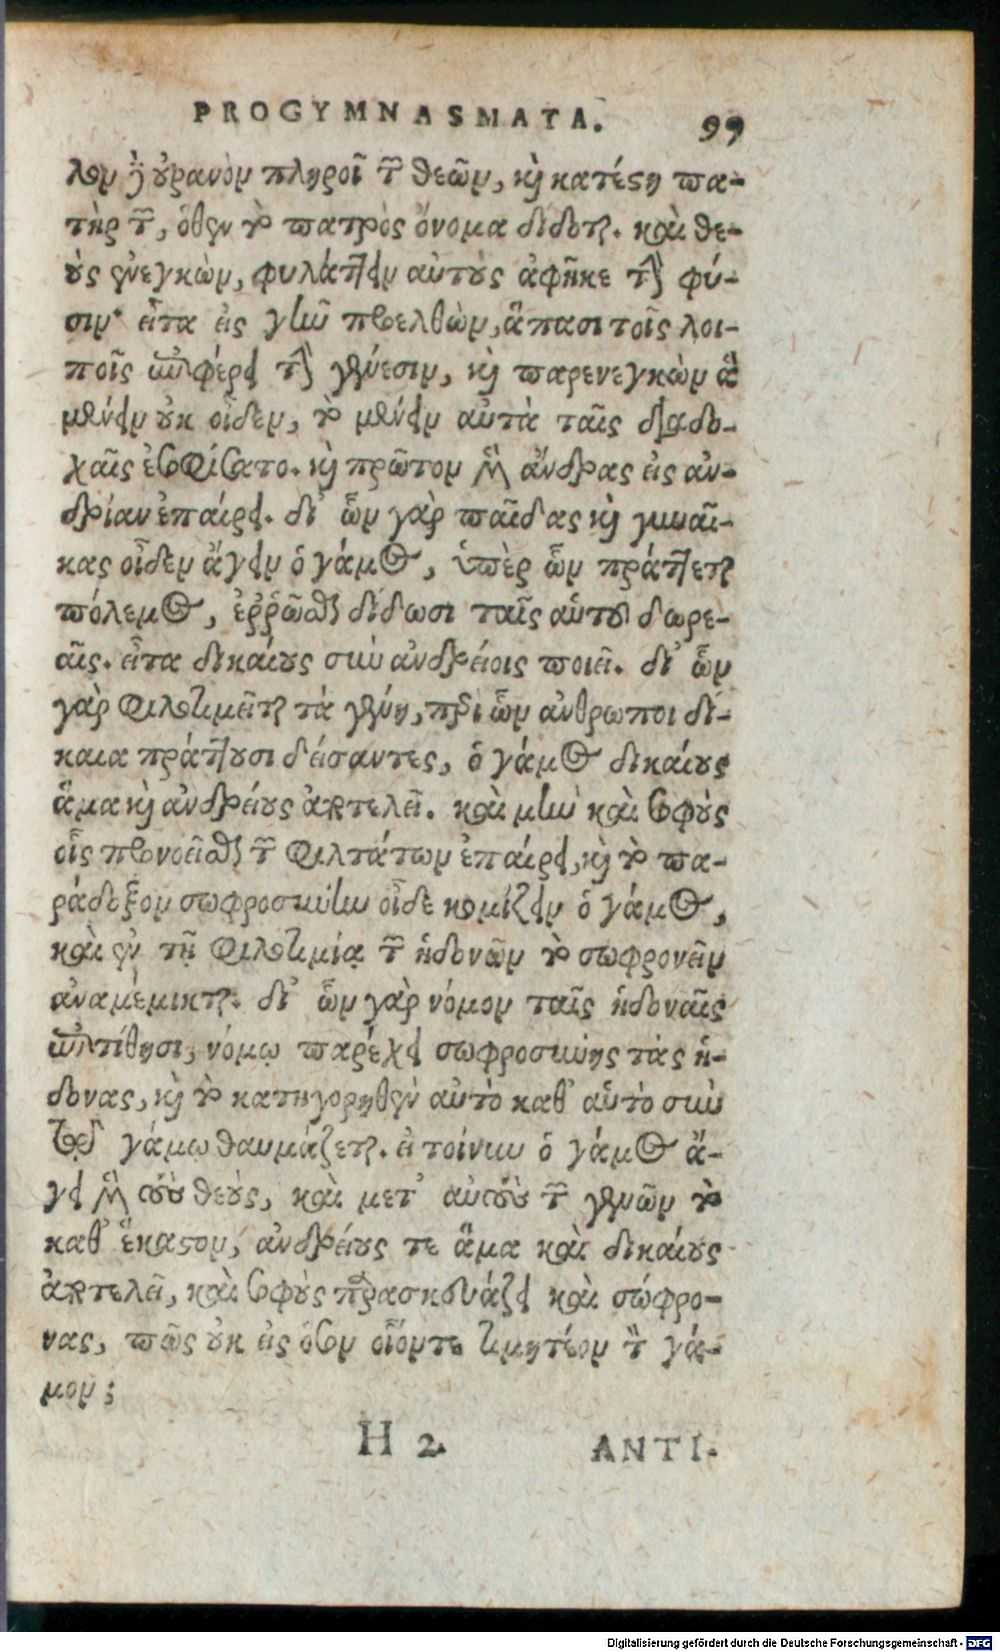 PROGYMNASMATA. 99
λον τὸν οὐρανὸν πληροῖ τῶν θεῶν, καὶ κατέστη πα-
τὴρ τῶν, ὅθεν τὸ πατρὸς ὄνομα δίδοται. καὶ θε-
οὺς ἐνεγκὼν, φυλάττειν αὐτοὺς ἀφῆκε τὴν φύ-
σιν· εἶτα εἰς γῆν προελθὼν, ἅπασι τοῖς λοι-
ποῖς ἐπιφέρει τὴν γένεσιν, καὶ παρενεγκὼν ἃ
μένειν οὐκ οἶδεν, τὸ μένειν αὐτὰ ταῖς διαδο-
χαῖς ἐσοφίσατο. καὶ πρῶτον μὲν ἄνδρας εἰς ἀν-
δρίαν ἐπαίρει. δι’ ὧν γὰρ παῖδας καὶ γυναῖ-
κας οἶδεν ἄγειν ὁ γάμος, ὑπὲρ ὧν πράττεται
πόλεμος, ἐῤῥῶσθαι δίδωσι ταῖς αὑτοῦ δωρε-
αῖς. εἶτα δικαίους σὺν ἀνδρείοις ποιεῖ. δι’ ὧν
γὰρ φιλοτιμεῖται τὰ γένη, περὶ ὧν ἄνθρωποι δί-
καια πράττουσι δείσαντες, ὁ γάμος δικαίους
ἅμα καὶ ἀνδρείους ἀποτελεῖ. καὶ μὴν καὶ σοφοὺς
οἷς προνοεῖσθαι τῶν φιλτάτων ἐπαίρει, καὶ τὸ πα-
ράδοξον σωφροσύνην οἶδε κομίζειν ὁ γάμος,
καὶ ἐν τῇ φιλοτιμίᾳ τῶν ἡδονῶν τὸ σωφρονεῖν
ἀναμέμικται. δι’ ὧν γὰρ νόμον ταῖς ἡδοναῖς
ἐπιτίθησι, νόμῳ παρέχει σωφροσύνης τὰς ἡ-
δονας, καὶ τὸ κατηγορηθὲν αὐτὸ καθ’ αὑτὸ σὺν
τῷ γάμω θαυμάζεται. εἰ τοίνυν ὁ γάμος ἄ-
γει μὲν τοὺς θεοὺς, καὶ μετ’ αὐτοὺς τῶν γενῶν τὸ
καθ’ ἕκαστον, ἀνδρείους τε ἅμα καὶ δικαίους
ἀποτελεῖ, καὶ σοφοὺς παρασκευάζει καὶ σώφρο-
νας, πῶς οὐκ εἰς ὅσον οἷόντε τιμητέον τὸν γά-
μον;
H 2 ANTI-
Digitalisierung gefördert durch die Deutsche Forschungsgemeinschaft - DFG